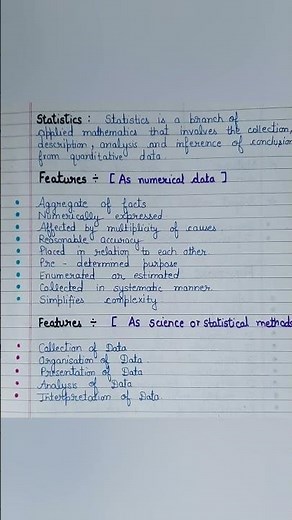 Statistics : Statistics is a branch of
applied mathematics that involves the collection,
description, analysis and inference of conclusion
from quantitative data
Features ÷ [ As numerical data ]
• Aggregate of facts
• Numerically expressed
• Affected by multiplicity of causes
• Reasonable accuracy
• Placed in relation to each other
• Pre - determined purpose
• Enumerated or estimated
• Collected in systematic manner
• Simplifies complexity
Features ÷ [ As science or statistical methods
• Collection of Data
• Organisation of Data
• Presentation of Data
• Analysis of Data
• Interpretation of Data